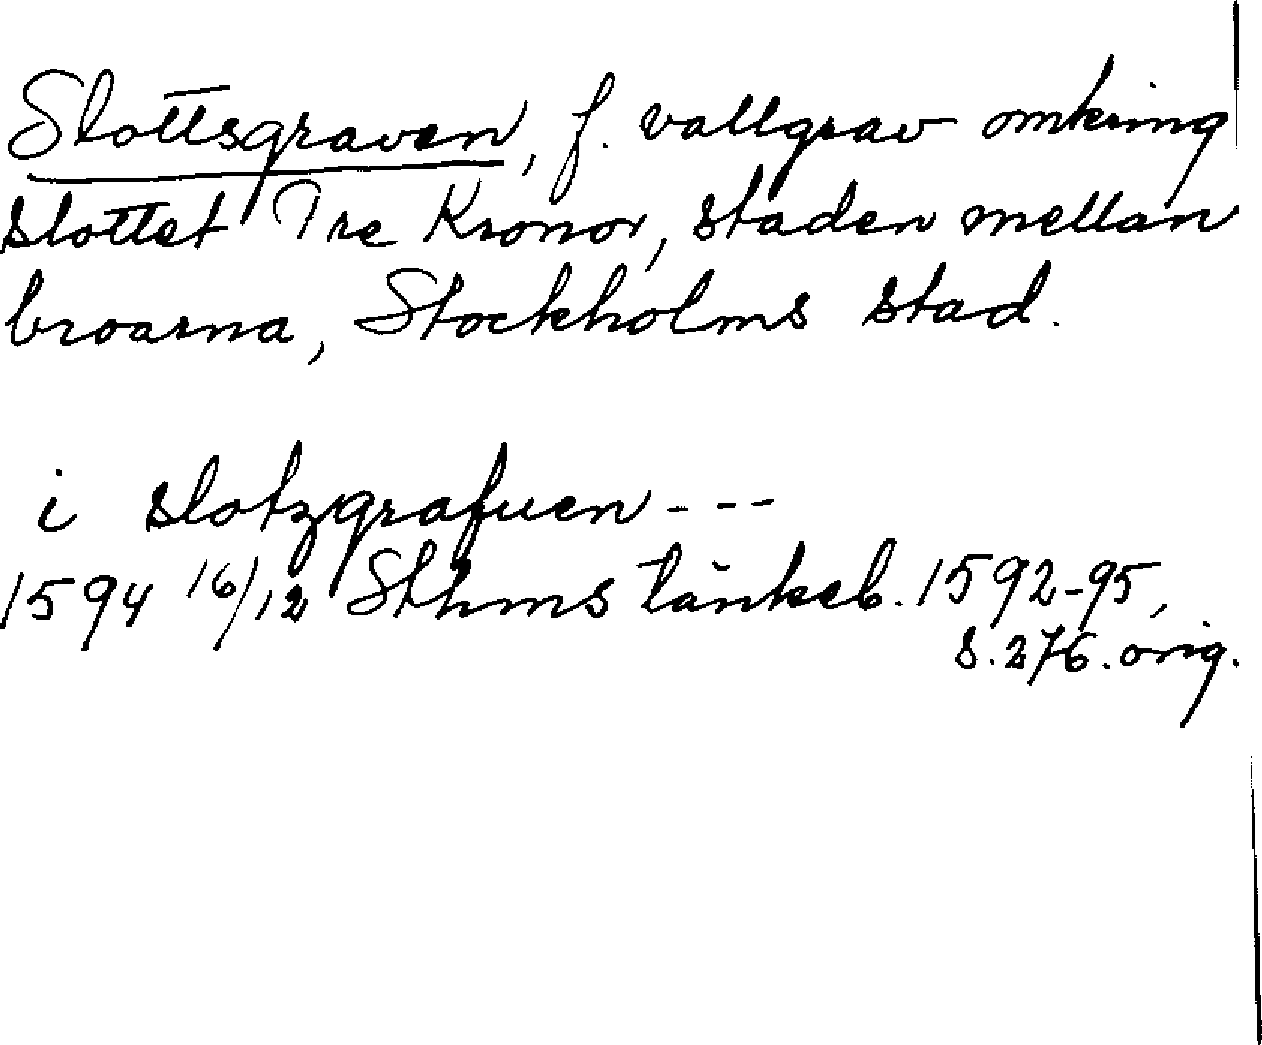 Slottsgraven, f. vallgrav omkring
slottet Tre Kronor, staden mellan
broarna, Stockholms stad.
i slotzgrafuen - - -
1594 16/12 Sthms tänkeb. 1592-95,
s. 276. orig.